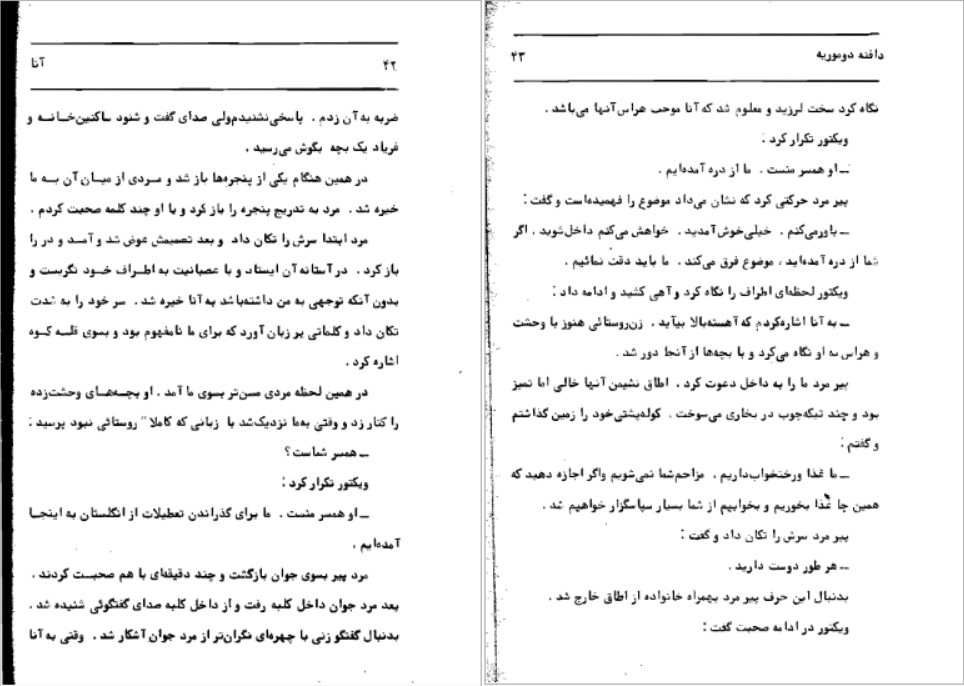 ۴۲ آنا
ضربه به آن زدم . پاسخی نشنیدم ولی صدای گفت و شنود ساکنین خانه و
فریاد یک بچه بگوش می‌رسید .
در همین هنگام یکی از پنجره‌ها باز شد و مردی از میان آن به ما
خیره شد . مرد به تدریج پنجره را باز کرد و با او چند کلمه صحبت کردم .
مرد ابتدا سرش را تکان داد و بعد تصمیمش عوض شد و آمد و در را
باز کرد . در آستانه آن ایستاد و با عصبانیت به اطراف خود نگریست و
بدون آنکه توجهی به من داشته‌باشد به آنا خیره شد . سر خود را به شدت
تکان داد و کلماتی بر زبان آورد که برای ما نامفهوم بود و بسوی قله کوه
اشاره کرد .
در همین لحظه مردی مسن‌تر بسوی ما آمد . او بچه‌های وحشت‌زده
را کنار زد و وقتی به‌ما نزدیک‌شد با زبانی که کاملا" روستائی نبود پرسید :
ــ همسر شماست ؟
ویکتور تکرار کرد :
ــ او همسر منست . ما برای گذراندن تعطیلات از انگلستان به اینجا
آمده‌ایم .
مرد پیر بسوی جوان بازگشت و چند دقیقه‌ای با هم صحبت کردند .
بعد مرد جوان داخل کلبه رفت و از داخل کلبه صدای گفتگوئی شنیده شد .
بدنبال گفتگو زنی با چهره‌ای نگران‌تر از مرد جوان آشکار شد . وقتی به آنا
دافنه دوموریه ۴۳
نگاه کرد سخت لرزید و معلوم شد که آنا موجب هراس آنها می‌باشد .
ویکتور تکرار کرد :
ــ او همسر منست . ما از دره آمده‌ایم .
پیر مرد حرکتی کرد که نشان می‌داد موضوع را فهمیده‌است و گفت :
ــ باورمی‌کنم . خیلی‌خوش‌آمدید . خواهش می‌کنم داخل‌شوید . اگر
شما از دره آمده‌اید ، موضوع فرق می‌کند . ما باید دقت نمائیم .
ویکتور لحظه‌ای اطراف را نگاه کرد و آهی کشید و ادامه داد :
ــ به آنا اشاره‌کردم که آهسته‌بالا بیآید . زن‌روستائی هنوز با وحشت
و هراس به او نگاه می‌کرد و با بچه‌ها از آنجا دور شد .
پیر مرد ما را به داخل دعوت کرد . اطاق نشیمن آنها خالی اما تمیز
بود و چند تیکه‌چوب در بخاری می‌سوخت . کوله‌پشتی‌خود را زمین گذاشتم
و گفتم :
ــ ما غذا ورختخواب‌داریم . مزاحم‌شما نمی‌شویم واگر اجازه دهید که
همین جا غذا بخوریم و بخوابیم از شما بسیار سپاسگزار خواهیم شد .
پیر مرد سرش را تکان داد و گفت :
ــ هر طور دوست دارید .
بدنبال این حرف پیر مرد بهمراه خانواده از اطاق خارج شد .
ویکتور در ادامه صحبت گفت :